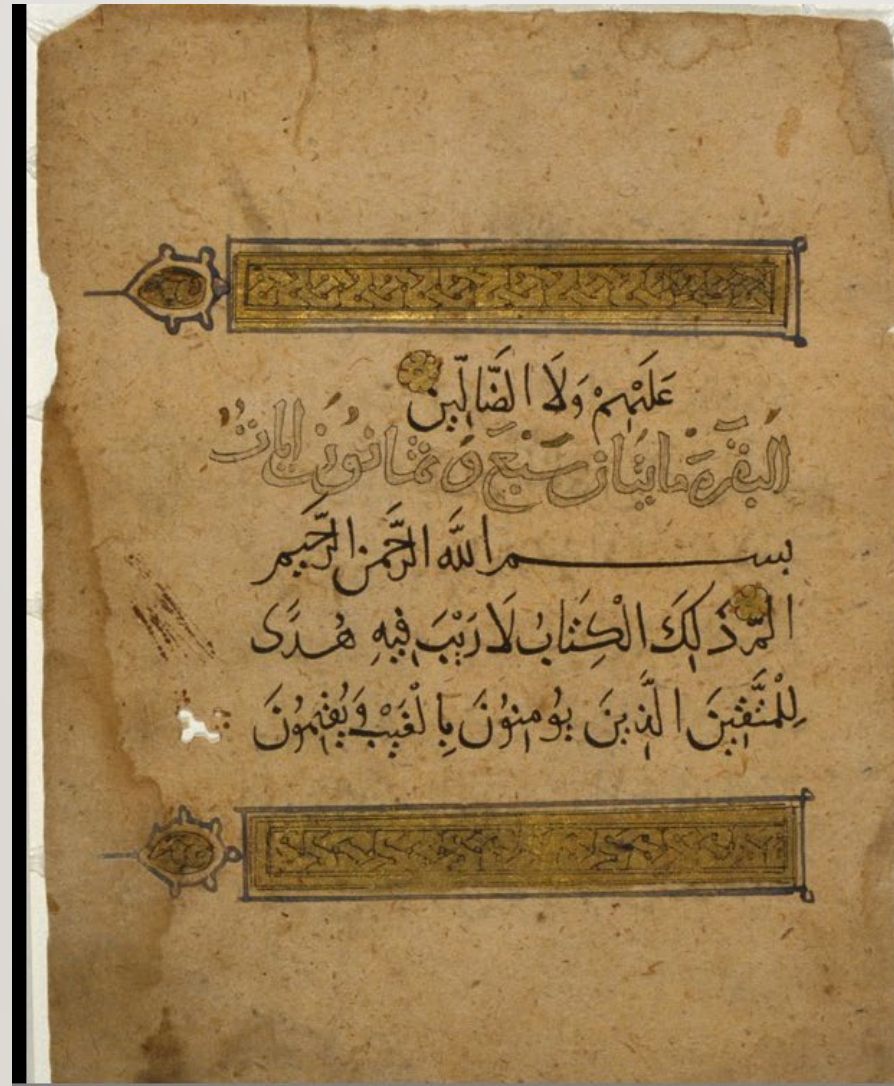 عَلَيْهِمْ وَلَا الضَّالِّين
البقرة مايتان سبع وثمانون ايات
بسم الله الرَّحْمَن الرَّحِيم
الم ذَلِكَ الْكِتَابُ لَا رَيْبَ فِيهِ هُدًى
لِلْمُتَّقِينَ الَّذِينَ يُومِنُونَ بِالْغَيْبِ وَيُقِيمُونَ